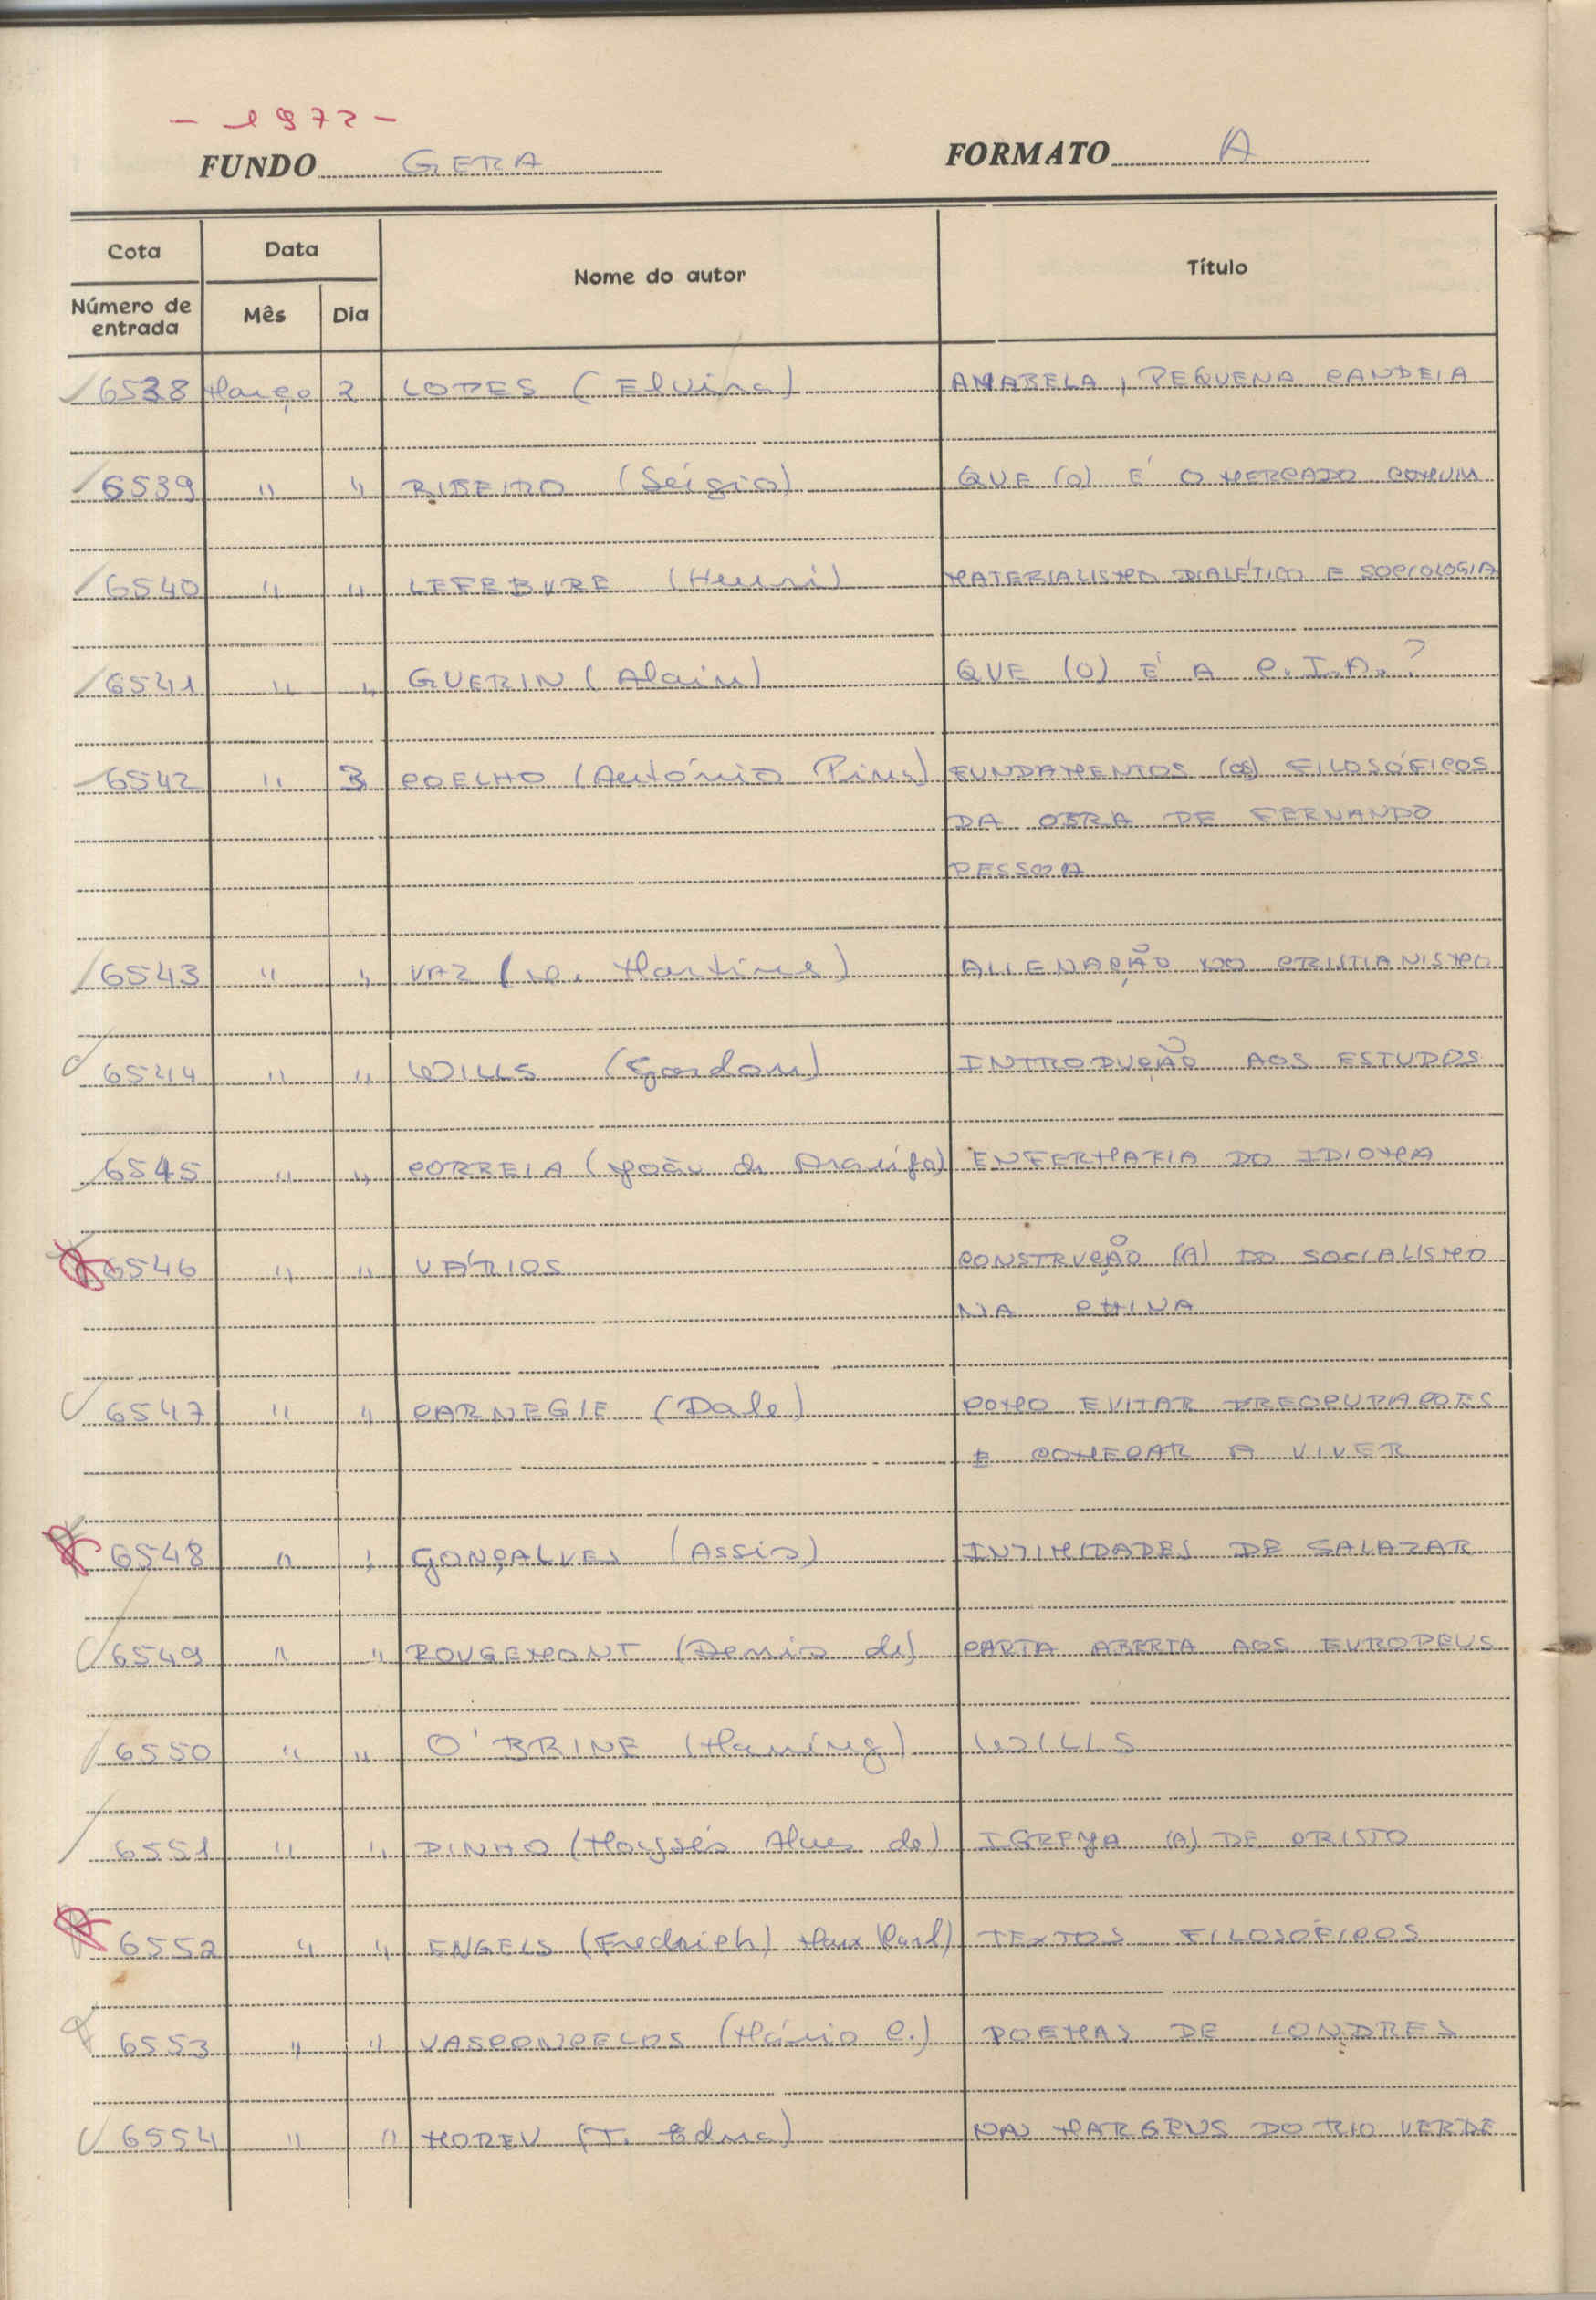 - 1972 -
FUNDO GERA FORMATO A
Cota Data Nome do autor Título
Número de entrada Mês Dia
6538 Março 2 LOPES (Elvira) ANABELA, PEQUENA CANDEIA
6539 " " RIBEIRO (Sérgio) QUE (O) É O MERCADO COMUM
6540 " " LEFEBVRE (Henri) MATERIALISMO DIALÉTICO E SOCIOLOGIA
6541 " " GUERIN (Alain) QUE (O) É A C.I.A.?
6542 " 3 COELHO (António Pina) FUNDAMENTOS (OS) FILOSÓFICOS
DA OBRA DE FERNANDO
PESSOA
6543 " " VAZ ( Martins) ALIENAÇÃO DO CRISTIANISMO
6544 " " WILLS (Gordon) INTRODUÇÃO AOS ESTUDOS
6545 " " CORREIA (João de Araújo) ENFERMARIA DO IDIOMA
6546 " " VÁRIOS CONSTRUÇÃO (A) DO SOCIALISMO
NA CHINA
6547 " " CARNEGIE (Dale) COMO EVITAR PREOCUPAÇOES
E COMEÇAR A VIVER
6548 " " GONÇALVES (Assis) INTIMIDADES DE SALAZAR
6549 " " ROUGEMONT (Denis de) CARTA ABERTA AOS EUROPEUS
6550 " " O'BRINE (Maning) WILLS
6551 " " PINHO (Moysés Alves de) IGREJA (A) DE CRISTO
6552 " " ENGELS (Fredrich) Marx Karl) TEXTOS FILOSÓFICOS
6553 " " VASCONCELOS (Mário C.) POEMAS DE LONDRES
6554 " " MOREU (T. Edna) NAS MARGENS DO RIO VERDE